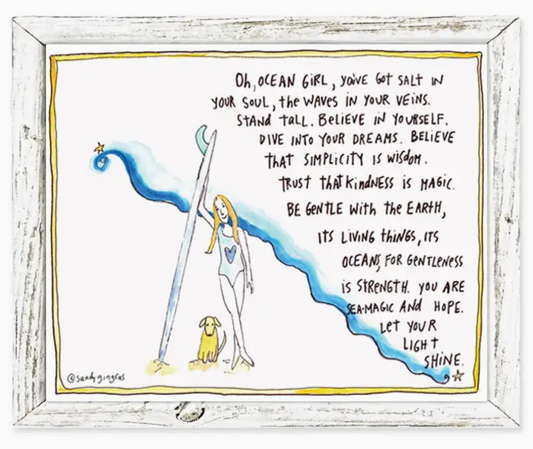 Oh, OCEAN GIRL, you've GOT SALT IN
YOUR SOUL, the WAVES IN YOUR VEINS.
STAND TALL. BELIEVE IN YOURSELF.
DIVE INTO YOUR DREAMS. BELIEVE
that SIMPLICITY IS WISDOM.
TRUST THAT KINDNESS IS MAGIC.
BE GENTLE WITH the EARTH,
ITS LIVING THINGS, ITS
OCEANS, FOR GENTLENESS
IS STRENGTH. YOU ARE
SEA-MAGIC AND HOPE.
LET YOUR
LIGHT
SHINE.
@sandygingras